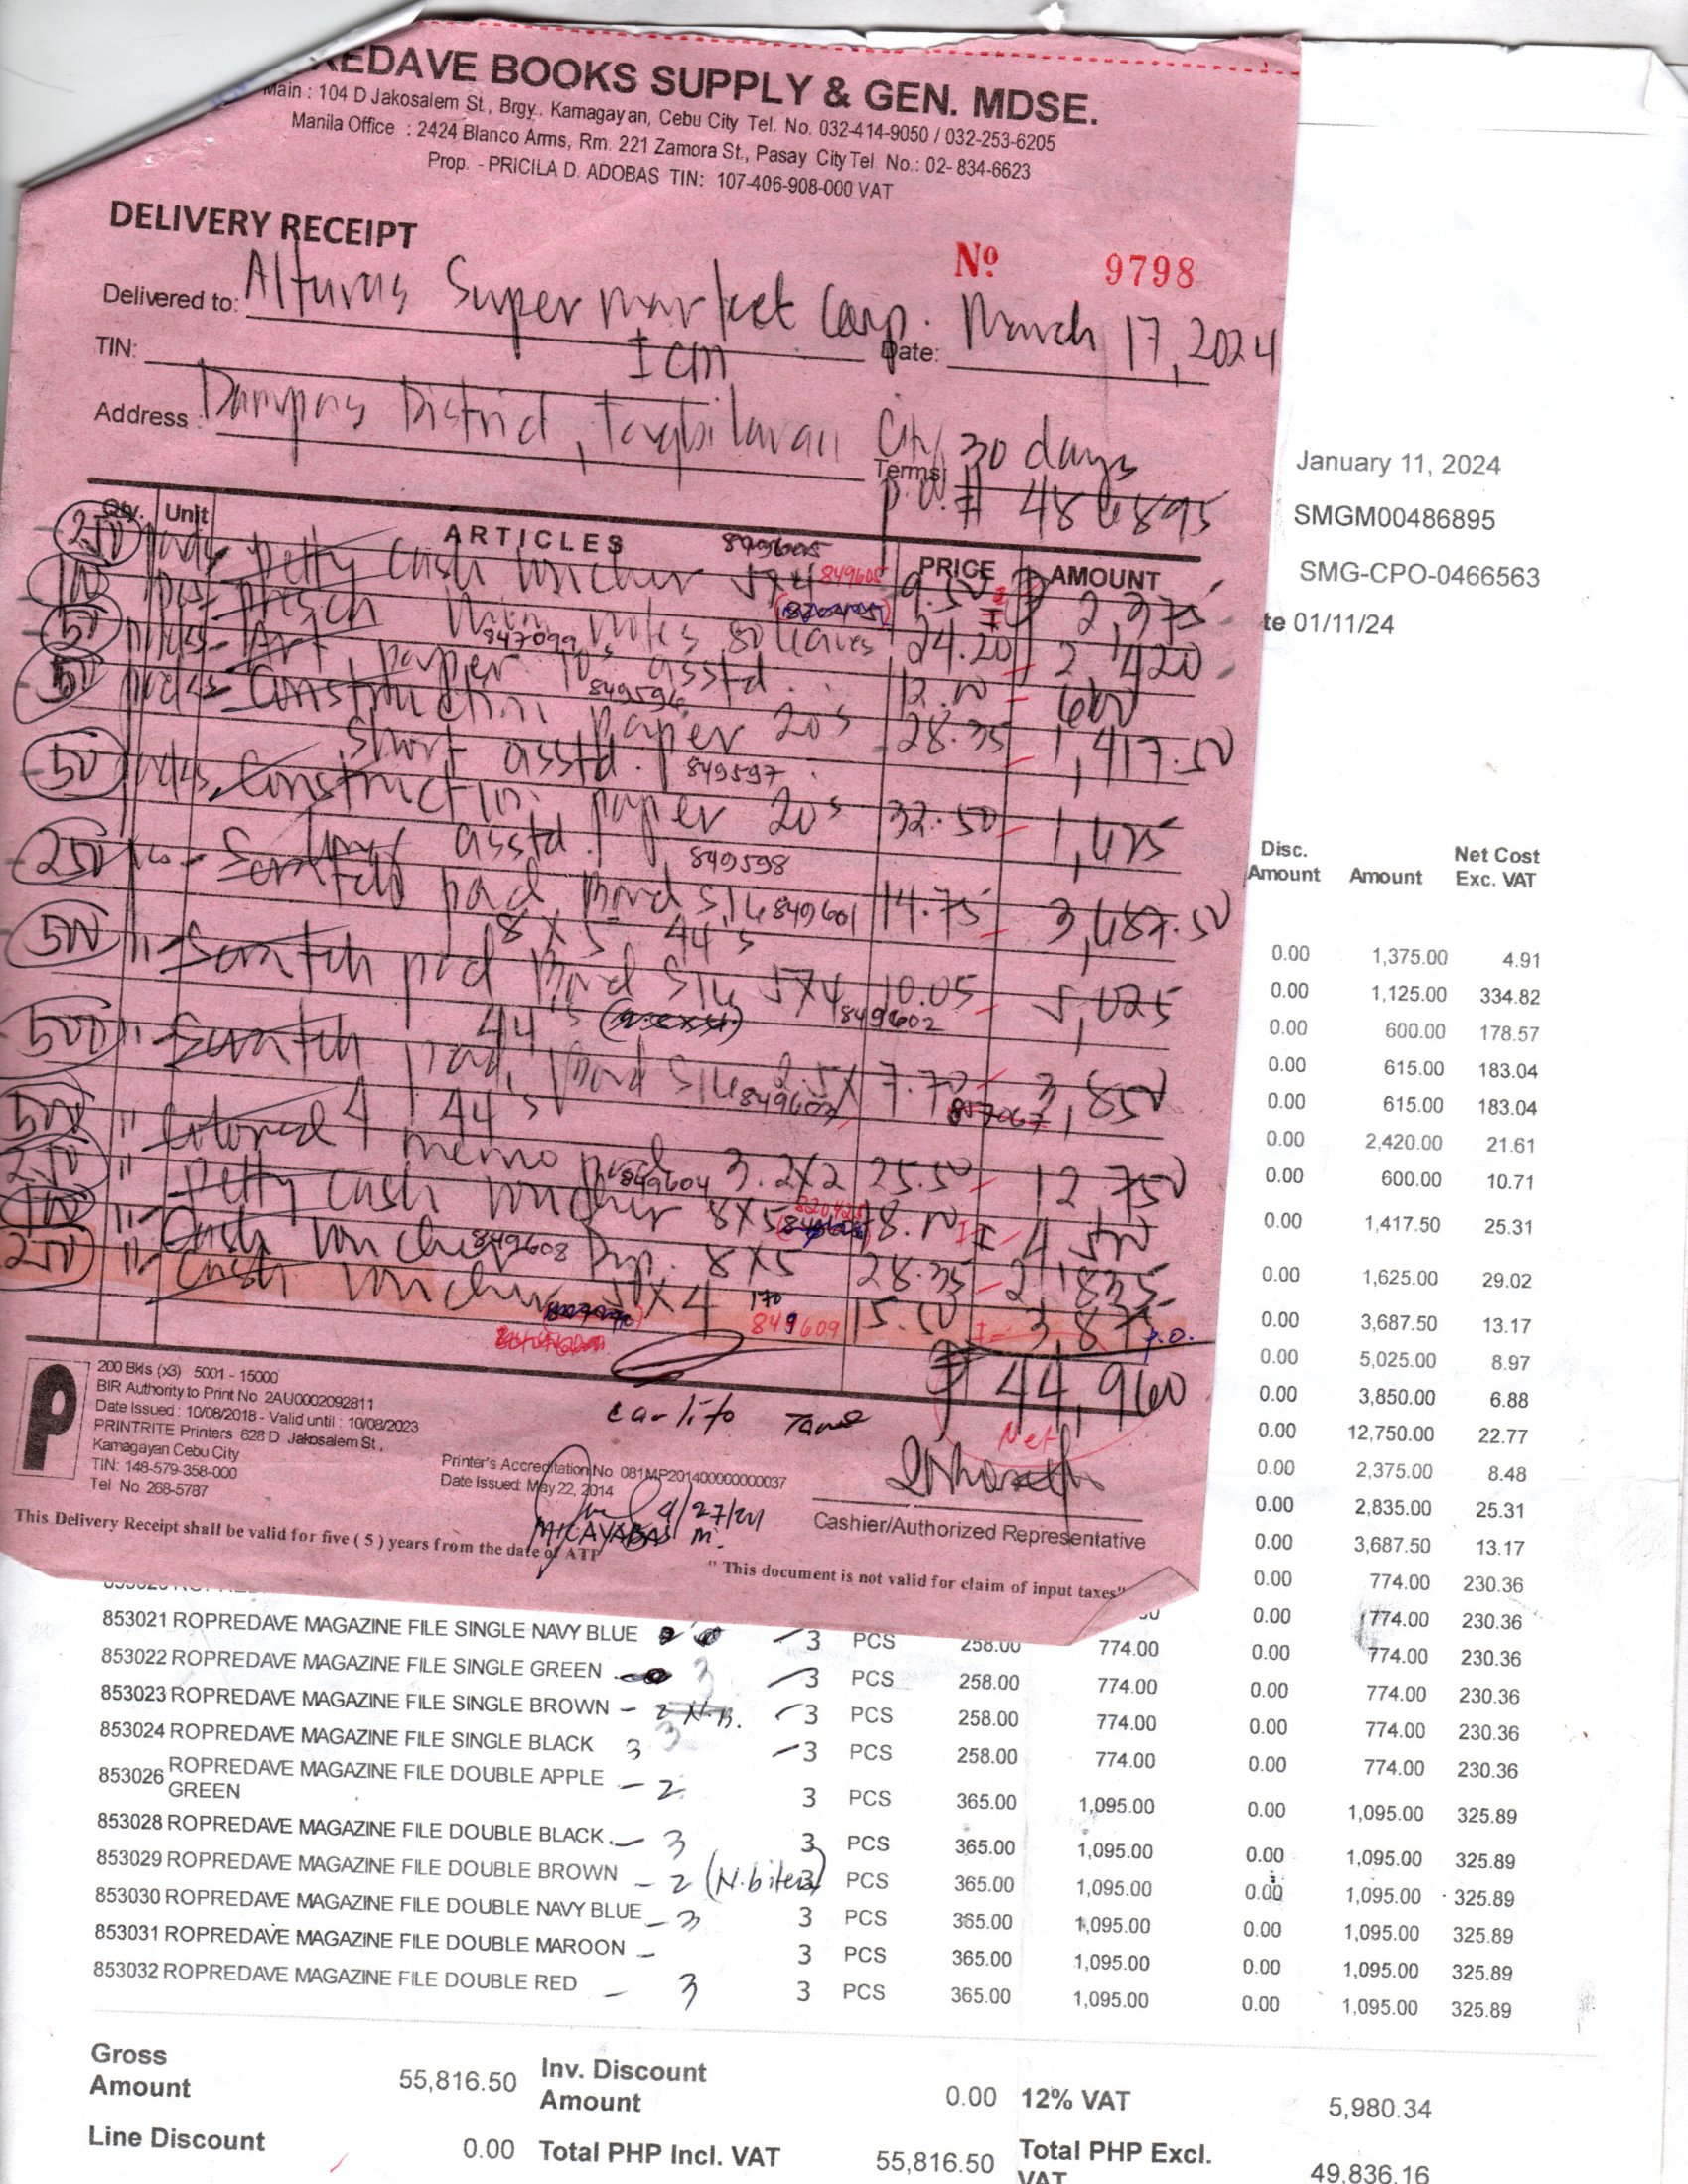 REDAVE BOOKS SUPPLY & GEN. MDSE.
Main : 104 D Jakosalem St., Brgy. Kamagayan, Cebu City Tel. No. 032-414-9050 / 032-253-6205
Manila Office : 2424 Blanco Arms, Rm. 221 Zamora St., Pasay City Tel. No.: 02- 834-6623
Prop. - PRICILA D. ADOBAS TIN: 107-406-908-000 VAT
DELIVERY RECEIPT
Nº 9798
Delivered to: Alturas Supermarket Corp. Date: March 17, 2024
TIN: Icm
Address : Dampas District, Tagbilaran City Terms: 30 days
P.O. # 486895
Qty. Unit ARTICLES PRICE AMOUNT
849605
250 pads - Petty Cash Voucher 5x4 849605 9.50 2,375
100 pcs - Presch Niñin notes 80 leaves 24.20 2,420
847099
50 packs - Art paper 10's asstd. 12.00 600
849596
50 packs - Construction paper 20's 28.35 1,417.50
Short asstd.
849597
50 packs - Construction paper 20's 32.50 1,625
Long asstd.
849598
250 pcs - Scratch pad Bond S16 14.75 3,687.50
849601
8 x 5 44's
500 " - Scratch pad Bond S16 5x4 10.05 5,025
44's 849602
500 " - Scratch pad, Bond S16 2.5 x 7.70 3,850
4 44's 849603 857067
500 " Colored memo pad 3.2x2 25.50 12,750
849604
250 " Petty Cash Voucher 8x5 18.00 4,500
820425
100 " - Cash Voucher Dup. 8x5 28.35 2,835
849608
250 " - Cash Voucher 5x4 15.50 3,875 P.O.
170
849609
₱ 44,960
Net
Carlito Tame
200 Bks (x3) 5001 - 15000
BIR Authority to Print No. 2AU0002092811
Date Issued : 10/08/2018 - Valid until : 10/08/2023
PRINTRITE Printers 628 D Jakosalem St.,
Kamagayan Cebu City
TIN: 148-579-358-000
Tel No. 268-5787
Printer's Accreditation No 081MP201400000000037
Date Issued: May 22, 2014
MICAYABAS M.
Cashier/Authorized Representative
This Delivery Receipt shall be valid for five ( 5 ) years from the date of ATP
" This document is not valid for claim of input taxes"
January 11, 2024
SMGM00486895
SMG-CPO-0466563
te 01/11/24
Disc. Amount Amount Net Cost Exc. VAT
0.00 1,375.00 4.91
0.00 1,125.00 334.82
0.00 600.00 178.57
0.00 615.00 183.04
0.00 615.00 183.04
0.00 2,420.00 21.61
0.00 600.00 10.71
0.00 1,417.50 25.31
0.00 1,625.00 29.02
0.00 3,687.50 13.17
0.00 5,025.00 8.97
0.00 3,850.00 6.88
0.00 12,750.00 22.77
0.00 2,375.00 8.48
0.00 2,835.00 25.31
0.00 3,687.50 13.17
0.00 774.00 230.36
0.00 774.00 230.36
853021 ROPREDAVE MAGAZINE FILE SINGLE NAVY BLUE 3 PCS 258.00 774.00 0.00 774.00 230.36
853022 ROPREDAVE MAGAZINE FILE SINGLE GREEN 3 3 PCS 258.00 774.00 0.00 774.00 230.36
853023 ROPREDAVE MAGAZINE FILE SINGLE BROWN - 2 N.B. 3 PCS 258.00 774.00 0.00 774.00 230.36
853024 ROPREDAVE MAGAZINE FILE SINGLE BLACK 3 3 3 PCS 258.00 774.00 0.00 774.00 230.36
853026 ROPREDAVE MAGAZINE FILE DOUBLE APPLE GREEN - 2 3 PCS 365.00 1,095.00 0.00 1,095.00 325.89
853028 ROPREDAVE MAGAZINE FILE DOUBLE BLACK - 3 3 PCS 365.00 1,095.00 0.00 1,095.00 325.89
853029 ROPREDAVE MAGAZINE FILE DOUBLE BROWN - 2 (N.bitea) 3 PCS 365.00 1,095.00 0.00 1,095.00 325.89
853030 ROPREDAVE MAGAZINE FILE DOUBLE NAVY BLUE - 3 3 PCS 365.00 1,095.00 0.00 1,095.00 325.89
853031 ROPREDAVE MAGAZINE FILE DOUBLE MAROON - 3 PCS 365.00 1,095.00 0.00 1,095.00 325.89
853032 ROPREDAVE MAGAZINE FILE DOUBLE RED - 3 3 PCS 365.00 1,095.00 0.00 1,095.00 325.89
Gross Amount 55,816.50 Inv. Discount Amount 0.00 12% VAT 5,980.34
Line Discount 0.00 Total PHP Incl. VAT 55,816.50 Total PHP Excl. VAT 49,836.16